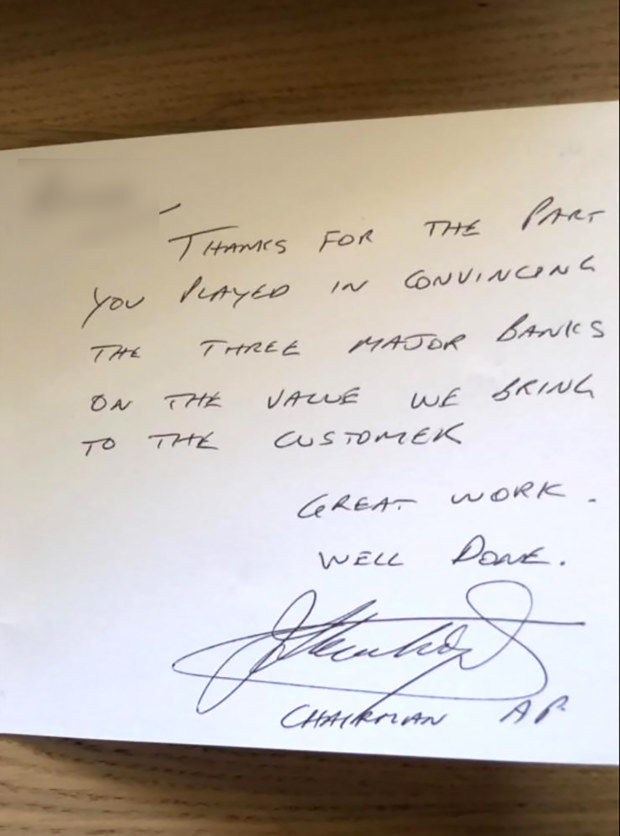 THANKS FOR THE PART
YOU PLAYED IN CONVINCING
THE THREE MAJOR BANKS
ON THE VALUE WE BRING
TO THE CUSTOMER
GREAT WORK.
WELL DONE.
CHAIRMAN AP.